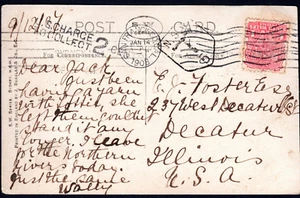 9/12/
POST CARD
SURCHARGE
COLLECT 2
JAN 14
190
FOR CORRESPONDENCE
Dear Jack,
Just been
having a yarn
with
left them couldn't
stand it any
longer. I leave
for the Northern
Rivers today.
Just the same
Wally
E. J. Foster Esq
237 West Decatur St
Decatur
Illinois
U.S.A.